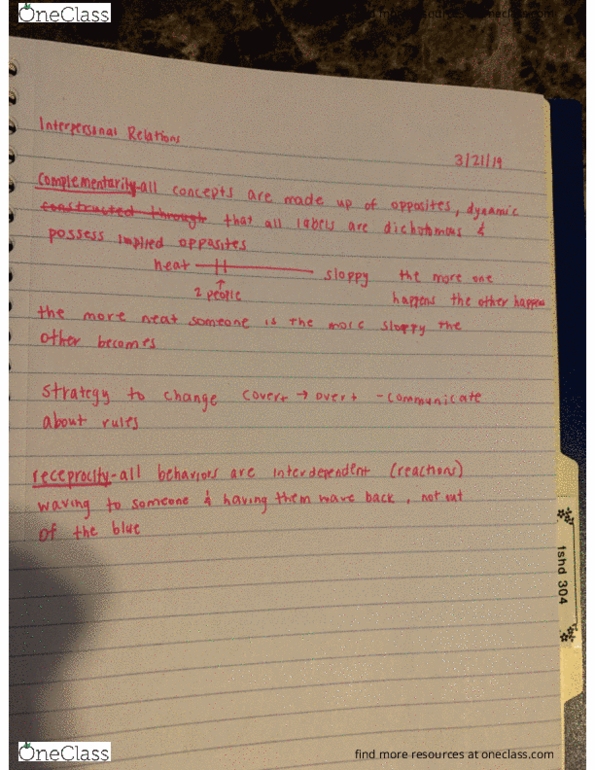 OneClass
find more resources at oneclass.com
Interpersonal Relations
3/21/19
Complementarity-all concepts are made up of opposites, dynamic
constructed through that all labels are dichotmous &
possess implied opposites
neat sloppy the more one
2 people happens the other happens
the more neat someone is the more sloppy the
other becomes
Strategy to change covert → overt - communicate
about rules
receprocity-all behaviors are interdependent (reactions)
waving to someone & having them wave back, not out
of the blue
fshd 304
OneClass
find more resources at oneclass.com